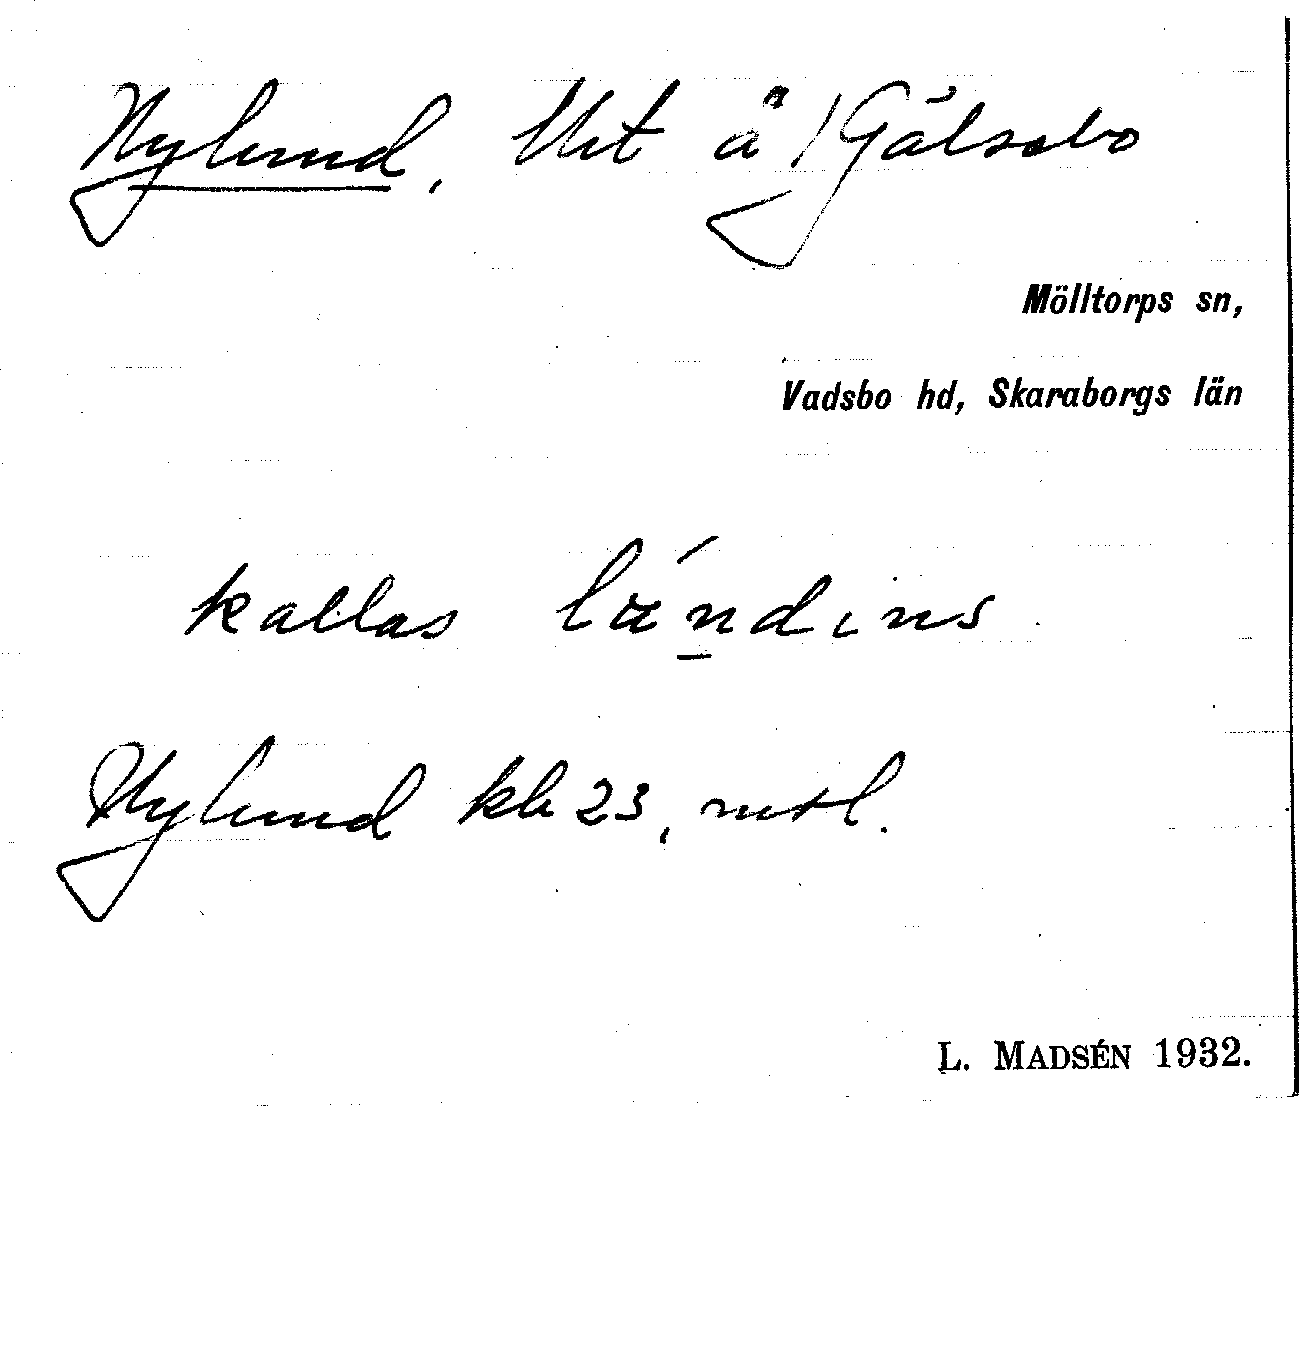 Nylund, lht å /Gälsebo
Mölltorps sn,
Vadsbo hd, Skaraborgs län
kallas lándins
Nylund kb 23, mtl.
L. MADSÉN 1932.